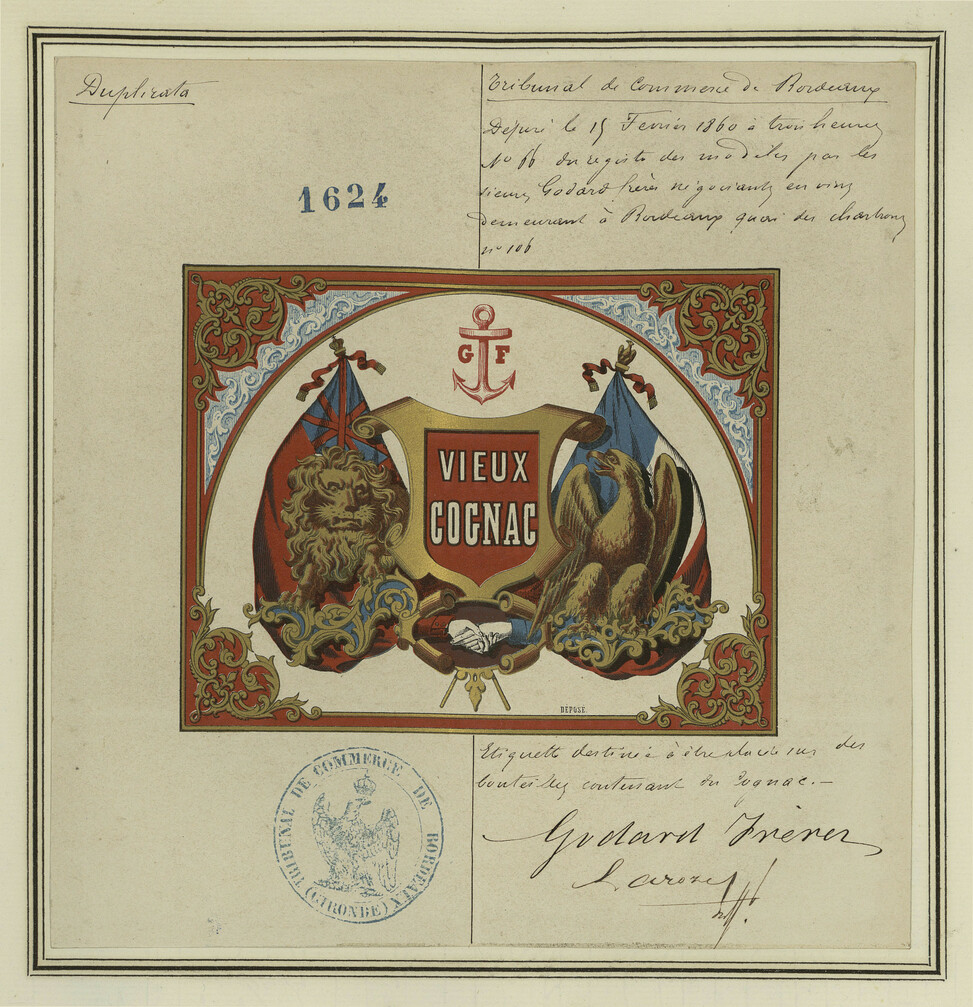 Duplicata
1624
Tribunal de Commerce de Bordeaux
Déposé le 15 Fevrier 1860 à trois heures
No 66 du registre des modèles par les
sieurs Godard frères négociants en vins
demeurant à Bordeaux quai des chartrons
no 106
G F
VIEUX
COGNAC
DÉPOSÉ
Etiquette destinée à être placée sur des
bouteilles contenant du Cognac. —
Godard Frères
Laroze
TRIBUNAL DE COMMERCE DE BORDEAUX
(GIRONDE)